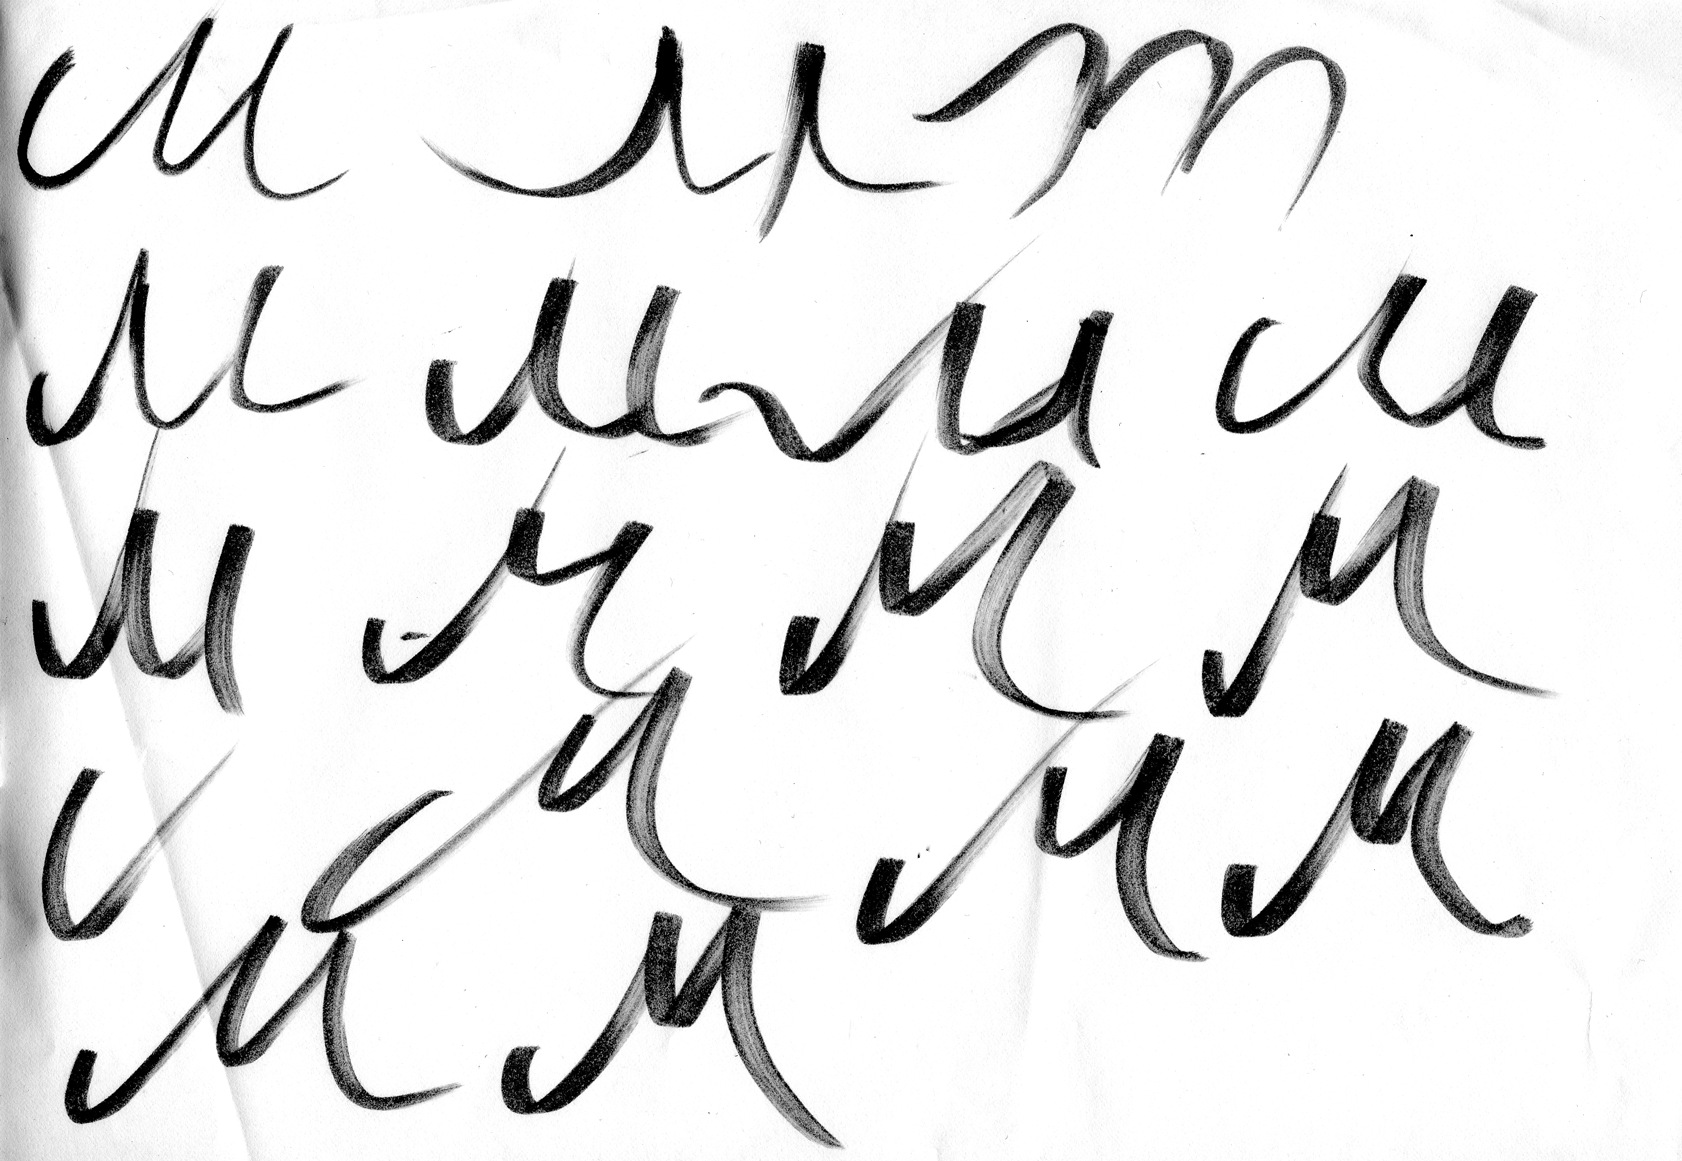 M M m
M M M M
M M M M
M M M
M M